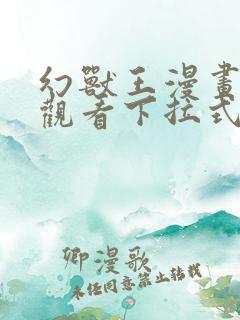 幻獸王漫畫
觀看下拉式
卿漫歌
未经同意禁止转载